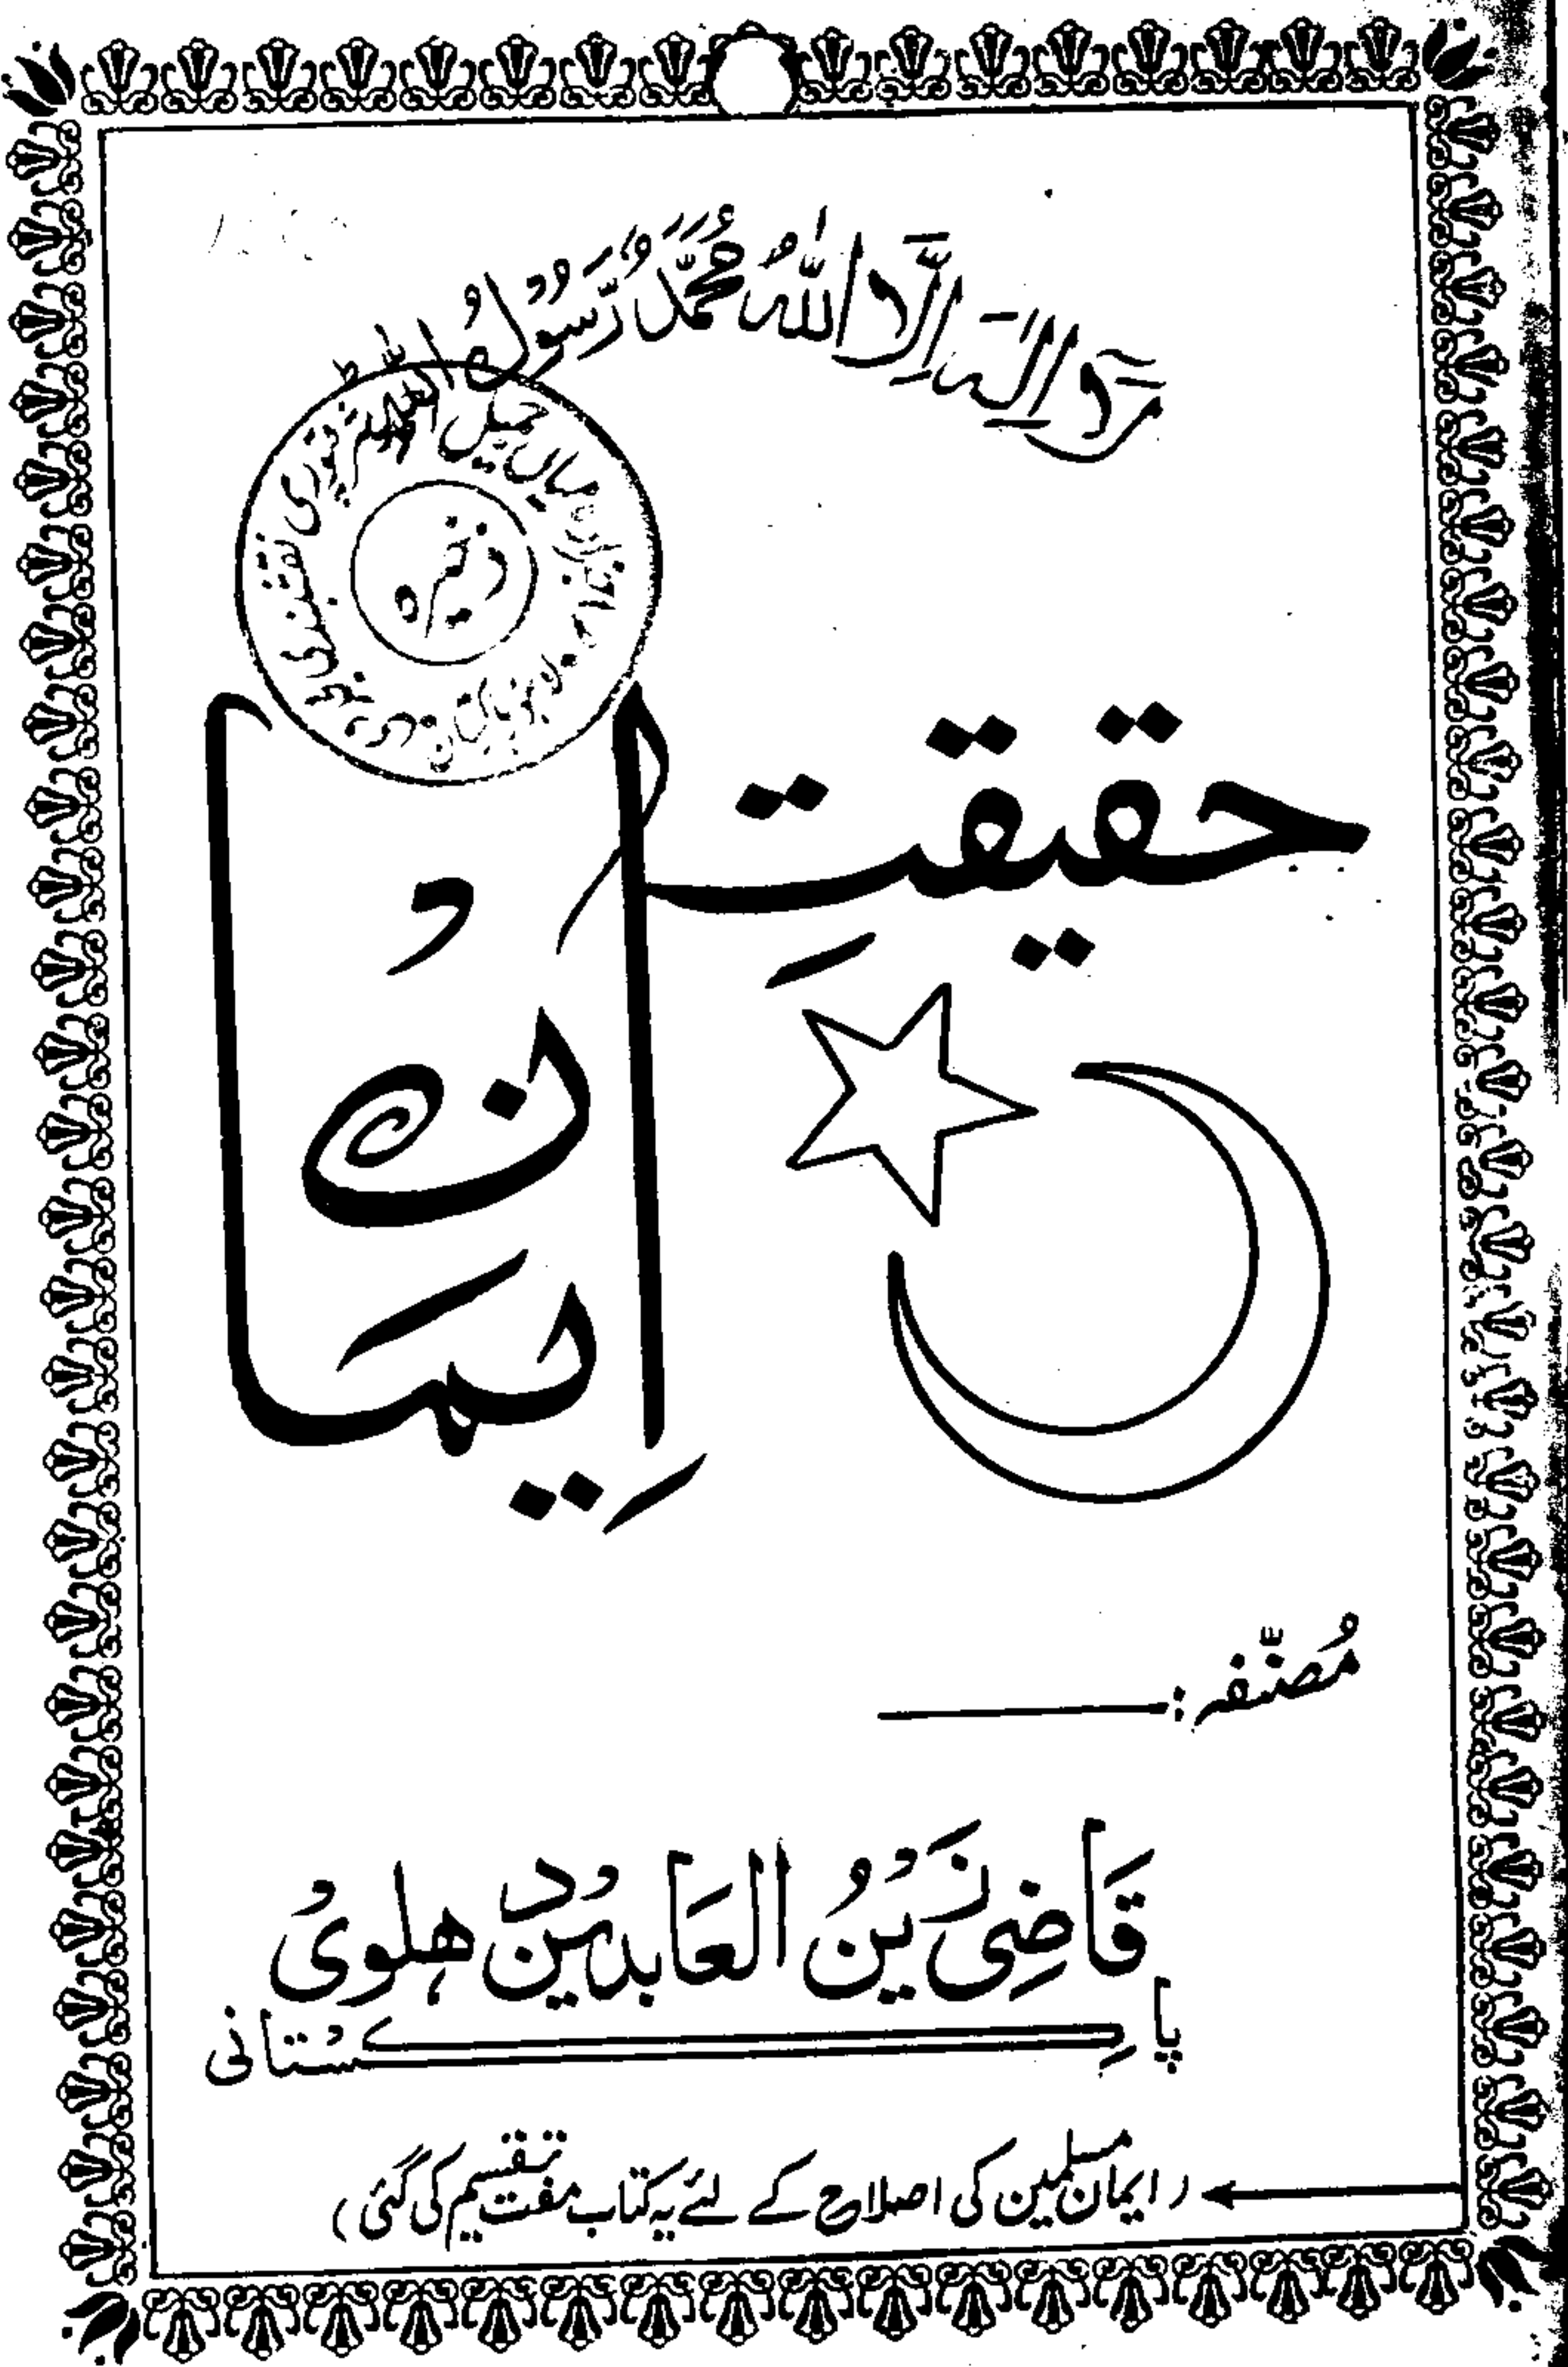 لَآ اِلٰہَ اِلَّا اللّٰہُ مُحَمَّدٌ رَّسُوْلُ اللّٰہِ
میاں جمیل احمد شرقپوری نقشبندی مجددی
ذخیرہ
حقیقتِ
اِیمَانْ
مُصنّفہ :
قَاضِی زَیْنُ العَابدیْن دھلویْ
پاکِستانی
(ایمان مسلمین کی اصلاح کے لئے یہ کتاب مفت تقسیم کی گئی)